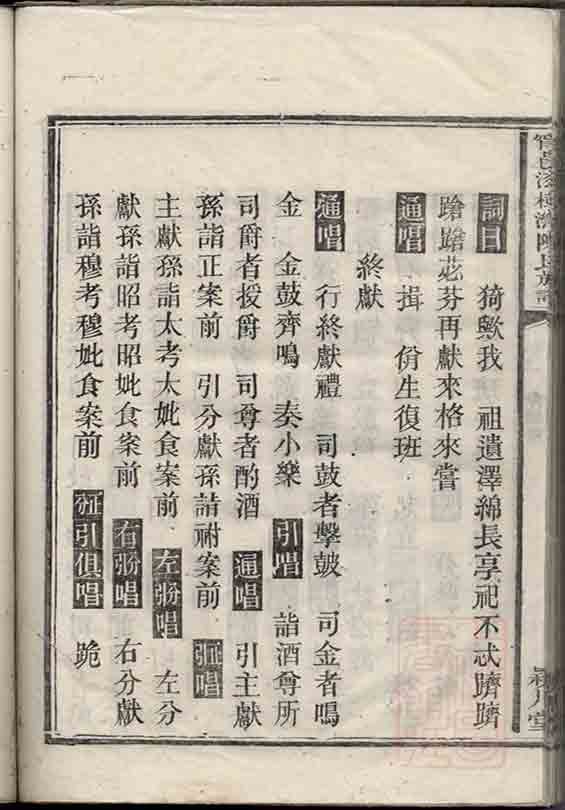 詞曰　猗歟我　祖遺澤綿長享祀不忒躋躋
蹌蹌苾芬再獻來格來嘗
通唱　揖　份生復班
終獻
通唱　行終獻禮　司鼓者擊鼓　司金者鳴
金　金鼓齊鳴　奏小樂　引唱　詣酒尊所
司爵者授爵　司尊者酌酒　通唱　引主獻
孫詣正案前　引分獻孫詣祔案前　唱
主獻孫詣太考太妣食案前　左唱　左分
獻孫詣昭考昭妣食案前　右唱　右分獻
孫詣穆考穆妣食案前　引俱唱　跪
邑陳氏族
堂